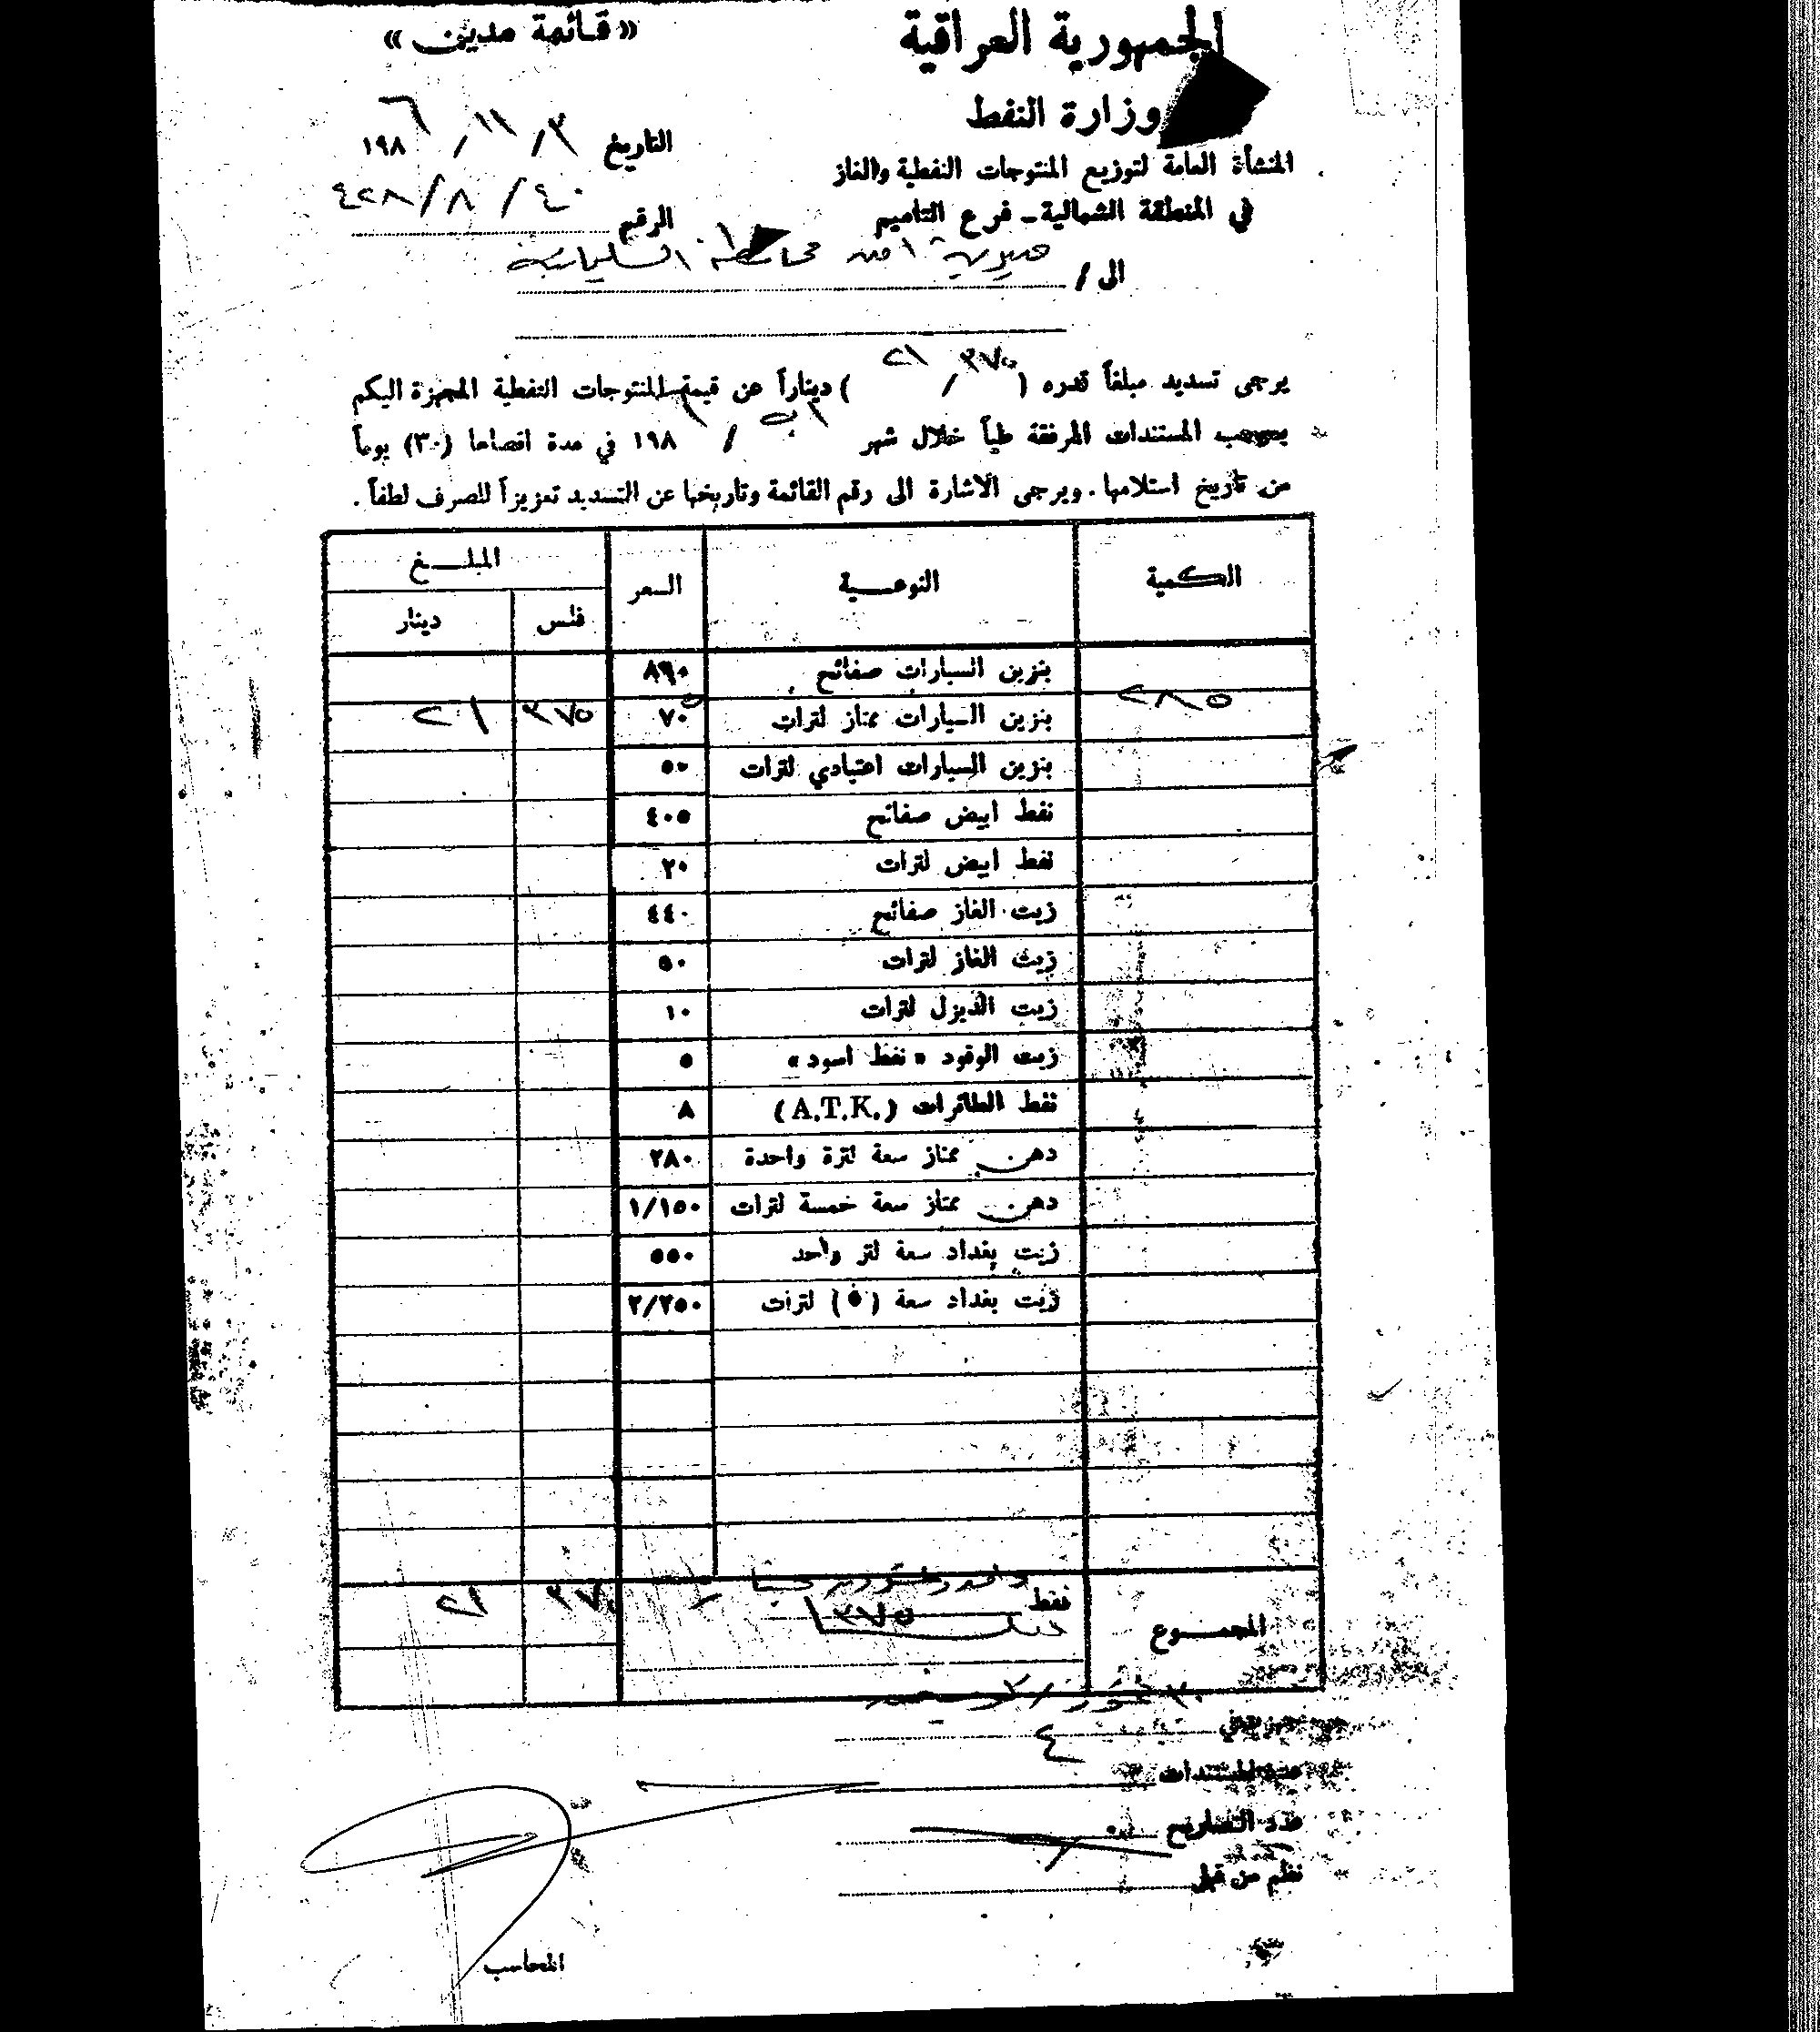 الجمهورية العراقية
« قائمة مدين »
وزارة النفط
التاريخ ٣ / ١١ / ١٩٨٦
المنشأة العامة لتوزيع المنتوجات النفطية والغاز
في المنطقة الشمالية ـ فرع التاميم
الرقم ٤٠ / ٨ / ٤٢٨
الى / مديرية أمن محافظة السليمانية
يرجى تسديد مبلغاً قدره ( ٣٧٥ / ٢١ ) ديناراً عن قيمة المنتوجات النفطية المجهزة اليكم
بموجب المستندات المرفقة طياً خلال شهر آب / ١٩٨٦ في مدة اقصاها (٣٠) يوماً
من تاريخ استلامها . ويرجى الاشارة الى رقم القائمة وتاريخها عن التسديد تعزيزاً للصرف لطفاً .
الكمية النوعية السعر المبلغ
فلس دينار
بنزين السيارات صفائح ٨٩٠
٢٨٥ بنزين السيارات ممتاز لترات ٧٥ ٣٧٥ ٢١
بنزين السيارات اعتيادي لترات ٥٠
نفط ابيض صفائح ٤٠٥
نفط ابيض لترات ٢٠
زيت الغاز صفائح ٤٤٠
زيت الغاز لترات ٥٠
زيت الديزل لترات ١٠
زيت الوقود « نفط اسود » ٥
نفط الطائرات (A.T.K.) ٨
دهن ممتاز سعة لترة واحدة ٢٨٠
دهن ممتاز سعة خمسة لترات ١/١٥٠
زيت بغداد سعة لتر واحد ٥٥٠
زيت بغداد سعة (٥) لترات ٢/٢٥٠
المجموع فقط واحد وعشرون ٣٧٥ ٣٧٥ ٢١
عدد المستندات ٤
عدد التصاريح
نظم من قبل
المحاسب